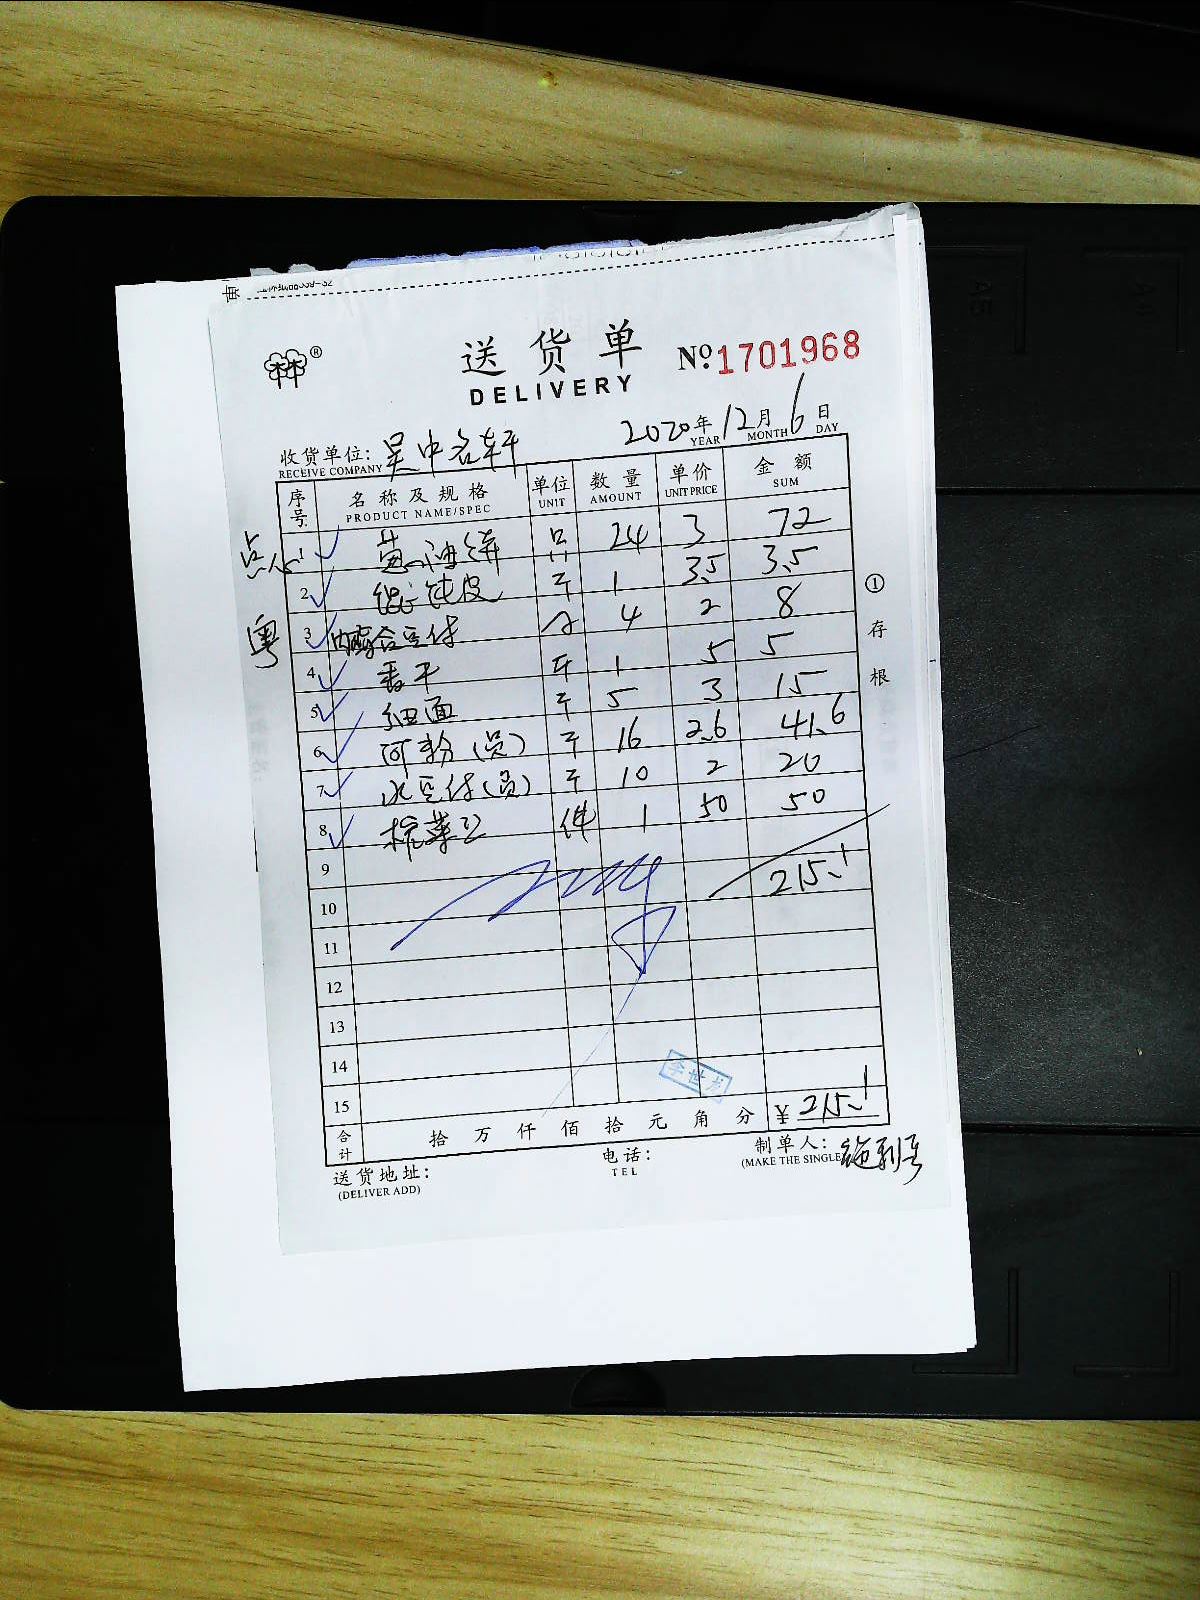 送货单 №1701968
DELIVERY
2020年12月6日
YEAR MONTH DAY
收货单位: 吴中名轩
RECEIVE COMPANY
序号 名称及规格 单位 数量 单价 金额
PRODUCT NAME/SPEC UNIT AMOUNT UNIT PRICE SUM
点心 1 葱油饼 只 24 3 72
2 馄饨皮 斤 1 3.5 3.5
粤 3 内酯盒豆付 4 2 8
4 香干 斤 1 5 5
5 细面 斤 5 3 15
6 河粉(员) 斤 16 2.6 41.6
7 水豆付(员) 斤 10 2 20
8 件 1 50 50
9
215.1
10
11
12
13
14
15
李世龙
合计 拾 万 仟 佰 拾 元 角 分 ¥ 215.1
送货地址: 电话: 制单人:
(DELIVER ADD) TEL (MAKE THE SINGLE
①存根